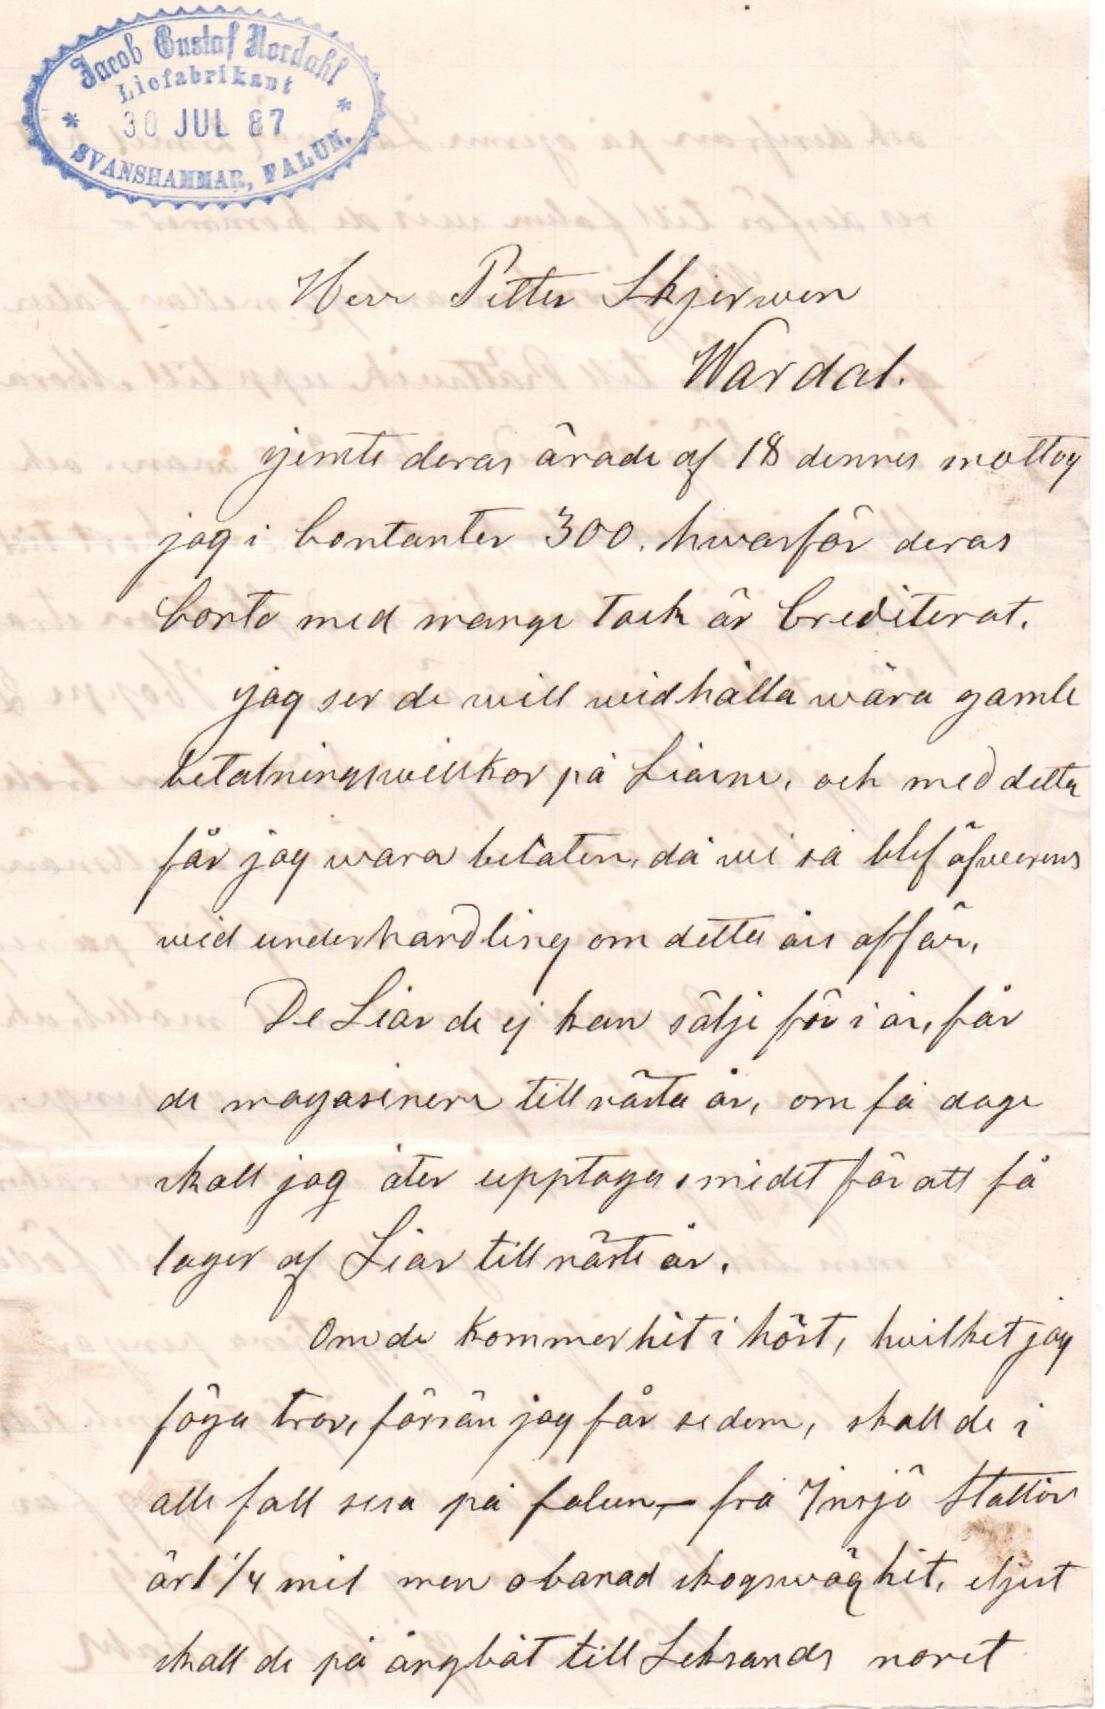 Jacob Gustaf Nordahl
Liefabrikant
* 30 JUL 87 *
SVANSHAMMAR, FALUN.
Herr Petter Skjerwen
Wardal.
jemte deras ärade af 18 dennes mottog
jag i Contanter 300. hwarför deras
Conto med mange tack är Crediterat.
jag ser de will widhålla wåra gamle
betalningswillkor på Liarne, och med detta
får jag wara belåten, då wi så blef öfwerens
wid underhandling om detta års affär,
De Liar de ej kan sälje för i år, får
de magasinere till nästa år, om få dage
skall jag åter upptaga smidet för att få
lager af Liar till näste år.
Om de kommer hit i höst, hvilket jag
föga tror, förrän jag får se dem, skall de i
alle fall resa på falun, — frå Insjö Station
är 1 1/4 mil men obanad skogswäg hit, eljest
skall de på ångbåt till Leksands noret